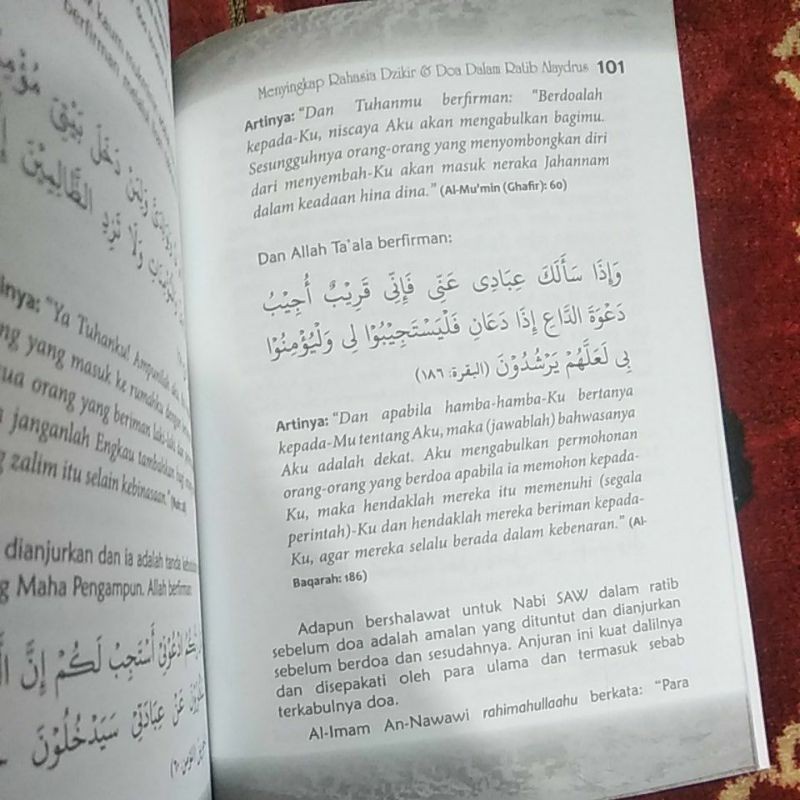 berfirman
مُؤْمِنًا
وَلِمَنْ دَخَلَ بَيْتِيَ
وَلَا تَزِدِ الظَّالِمِيْنَ
"Ya Tuhanku! Ampunilah
yang masuk ke rumahku dengan
orang yang beriman laki-laki dan
janganlah Engkau tambahkan
zalim itu selain kebinasaan."
dianjurkan dan ia adalah tanda
Maha Pengampun. Allah berfirman
ادْعُوْنِيْ أَسْتَجِبْ لَكُمْ إِنَّ
عَنْ عِبَادَتِيْ سَيَدْخُلُوْنَ
Menyingkap Rahasia Dzikir & Doa Dalam Ratib Alaydrus 101
Artinya: "Dan Tuhanmu berfirman: "Berdoalah
kepada-Ku, niscaya Aku akan mengabulkan bagimu.
Sesungguhnya orang-orang yang menyombongkan diri
dari menyembah-Ku akan masuk neraka Jahannam
dalam keadaan hina dina." (Al-Mu'min (Ghafir): 60)
Dan Allah Ta'ala berfirman:
وَإِذَا سَأَلَكَ عِبَادِى عَنِّى فَإِنِّى قَرِيْبٌ أُجِيْبُ
دَعْوَةَ الدَّاعِ إِذَا دَعَانِ فَلْيَسْتَجِيْبُوْا لِى وَلْيُؤْمِنُوْا
بِى لَعَلَّهُمْ يَرْشُدُوْنَ (البقرة: ١٨٦)
Artinya: "Dan apabila hamba-hamba-Ku bertanya
kepada-Mu tentang Aku, maka (jawablah) bahwasanya
Aku adalah dekat. Aku mengabulkan permohonan
orang-orang yang berdoa apabila ia memohon kepada-
Ku, maka hendaklah mereka itu memenuhi (segala
perintah)-Ku dan hendaklah mereka beriman kepada-
Ku, agar mereka selalu berada dalam kebenaran." (Al-
Baqarah: 186)
Adapun bershalawat untuk Nabi SAW dalam ratib
sebelum doa adalah amalan yang dituntut dan dianjurkan
sebelum berdoa dan sesudahnya. Anjuran ini kuat dalilnya
dan disepakati oleh para ulama dan termasuk sebab
terkabulnya doa.
Al-Imam An-Nawawi rahimahullaahu berkata: "Para